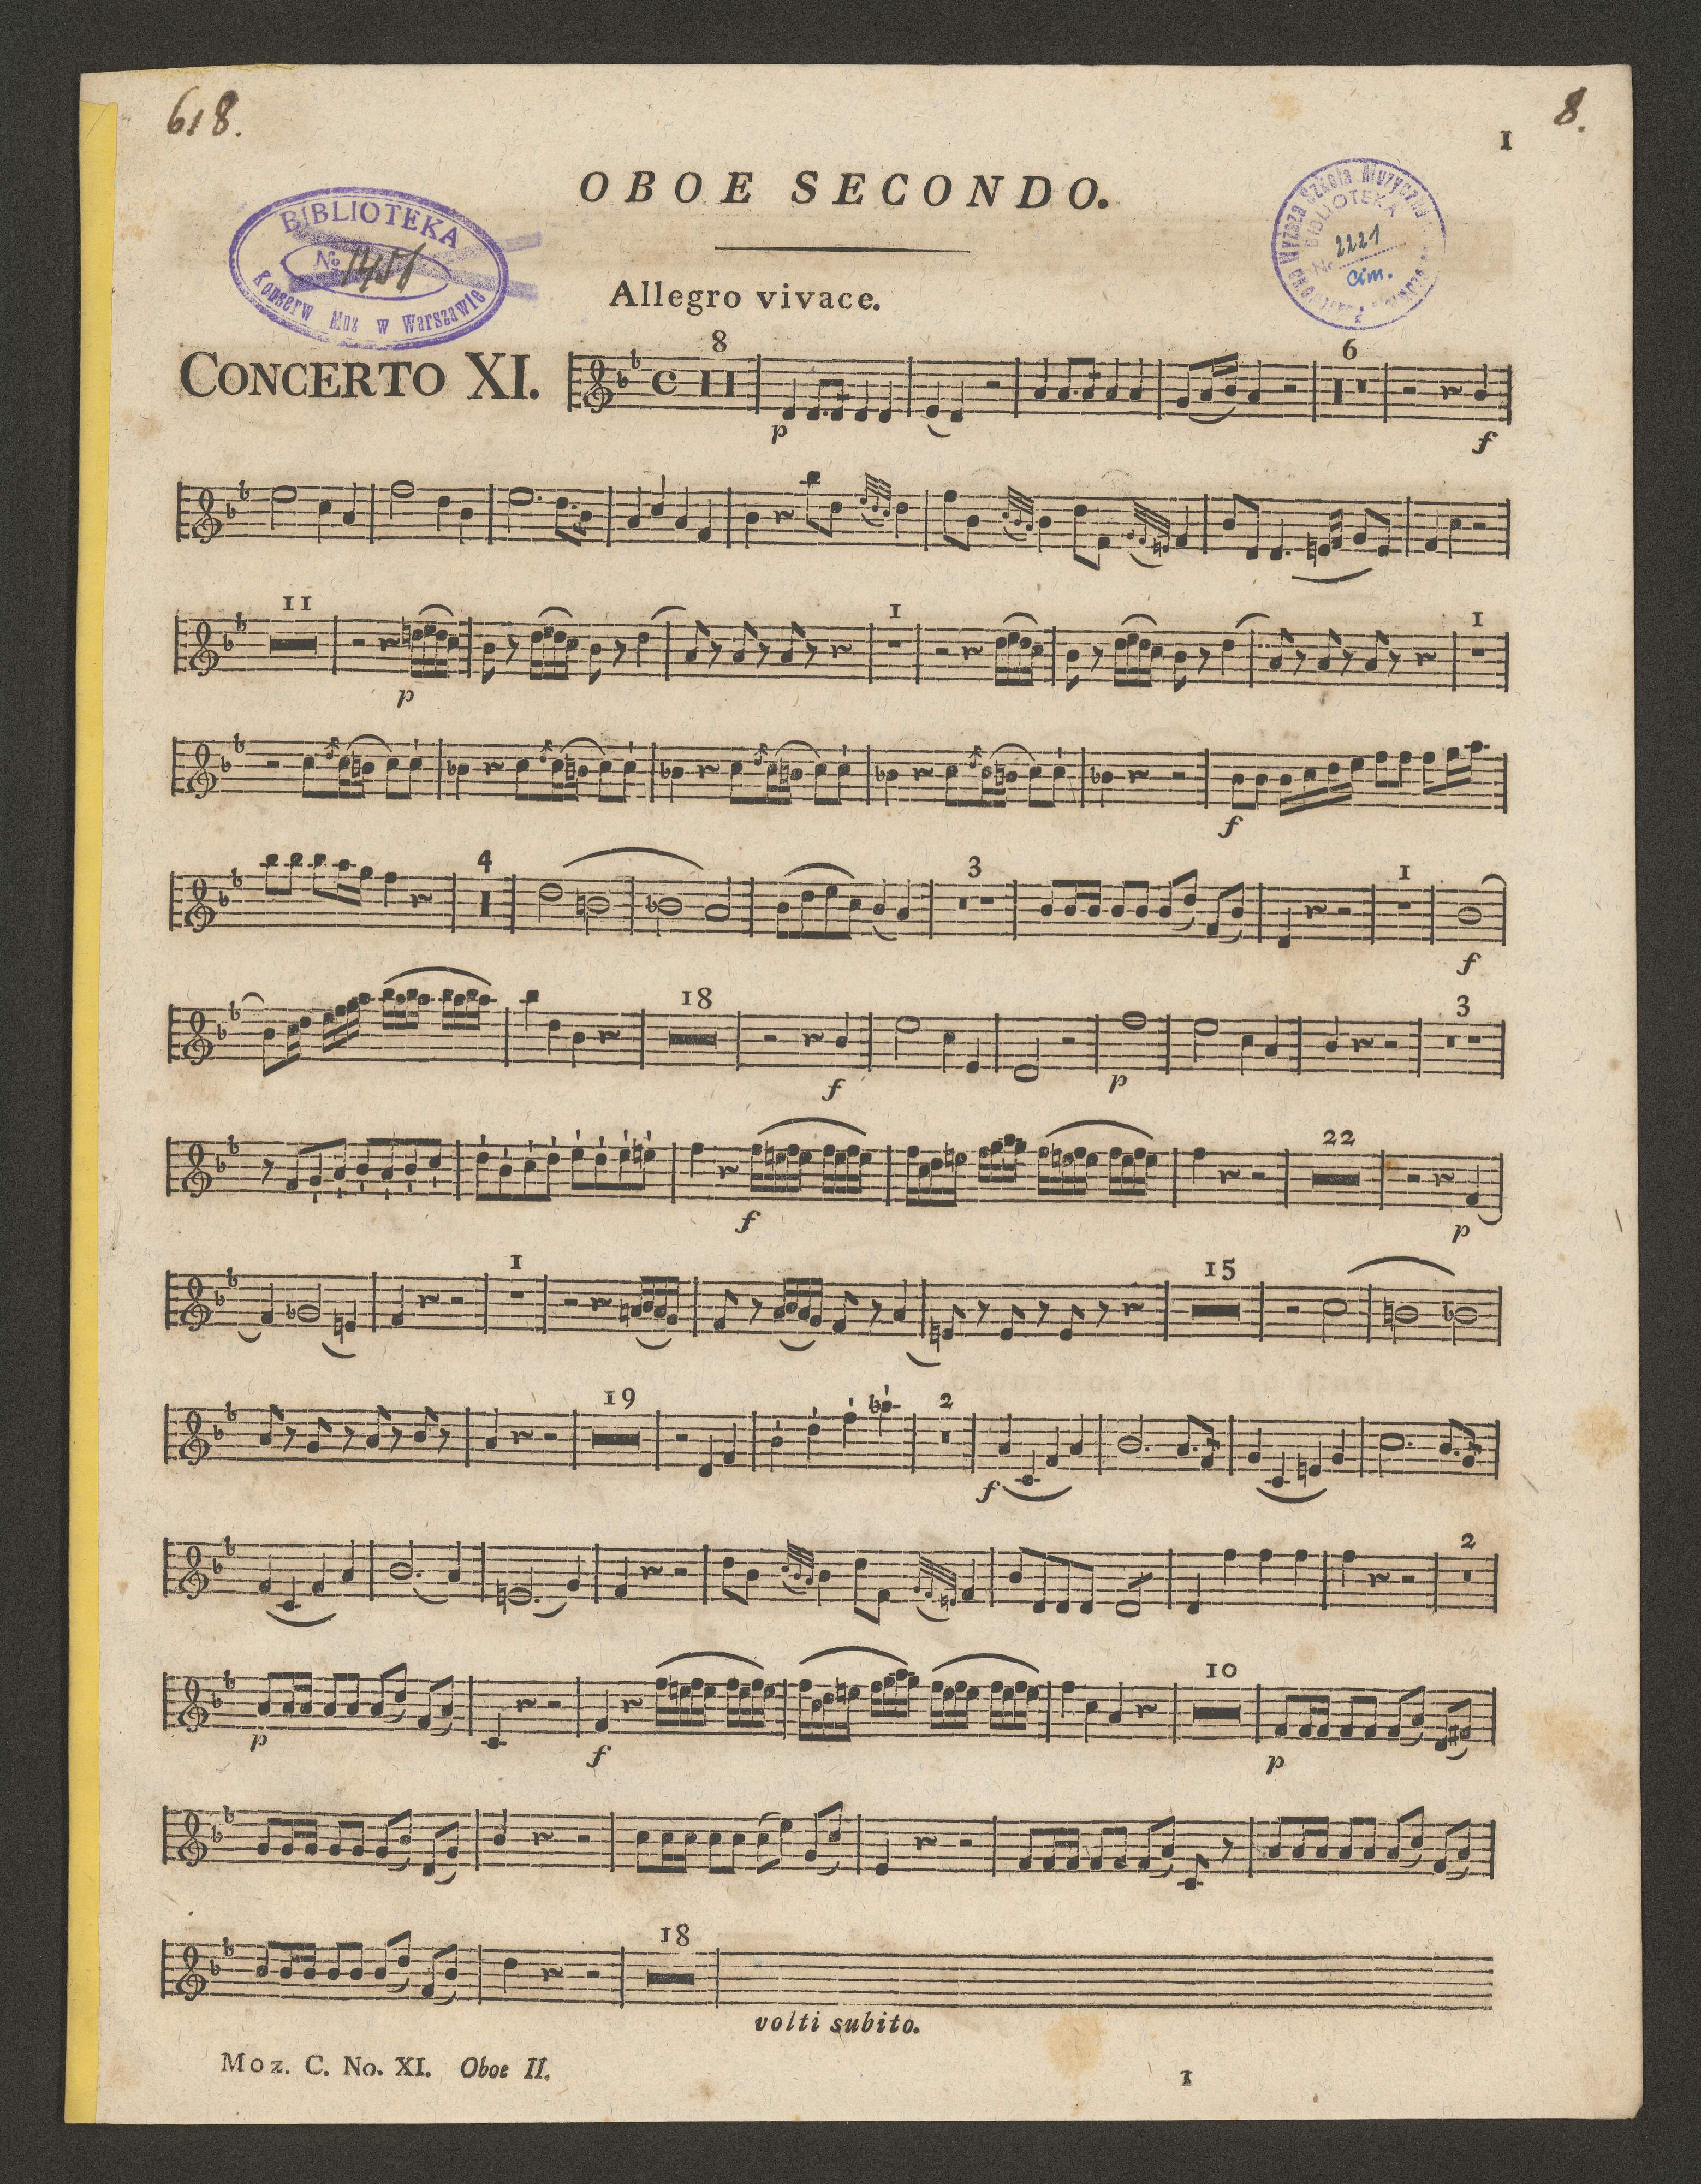 618.
8.
1
OBOE SECONDO.
BIBLIOTEKA
No
Konserw Muz w Warszawie
Wyższa Szkoła Muzyczna
BIBLIOTEKA
No 2221
Cim.
Allegro vivace.
CONCERTO XI.
8
6
p
f
11
1
1
p
f
4
3
1
f
18
3
f
p
22
f
p
1
15
19
2
f
2
10
p
f
p
18
volti subito.
Moz. C. No. XI. Oboe II.
1